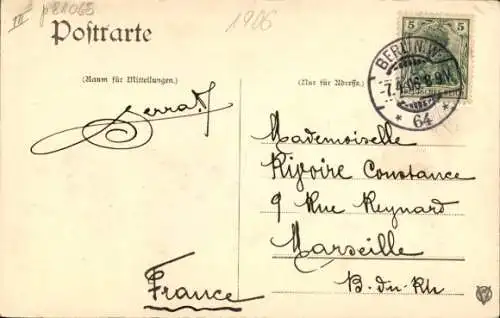 III p81068
1906
Postkarte
5 5
BERLIN.W.
-7.4.06.8-9V.
* 64 *
(Raum für Mitteilungen.)
(Nur für Adresse.)
Mademoiselle
Rivoire Constance
9 Rue Reynard
Marseille
B.-du-Rh
France